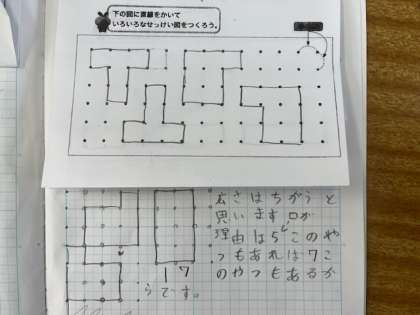 下の図に直線をかいて
いろいろなせっけい図をつくろう。
広さはちがうと
思います□が
理由は5このや
つもあれば7こ
のやつもあるか
らです。
17